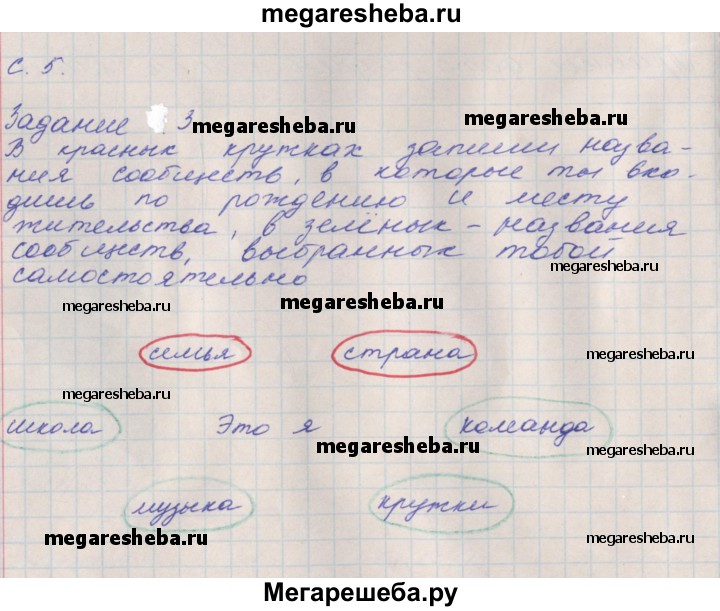 megaresheba.ru
с. 5.
Задание 3
megaresheba.ru
megaresheba.ru
В красных кружках запиши назва-
ния сообществ, в которые ты вхо-
дишь по рождению и месту
жительства, в зелёных - названия
сообществ, выбранных тобой
megaresheba.ru
самостоятельно
megaresheba.ru
megaresheba.ru
семья страна
megaresheba.ru
megaresheba.ru
школа Это я команда
megaresheba.ru
megaresheba.ru
музыка кружки
megaresheba.ru
megaresheba.ru
Мегарешеба.ру